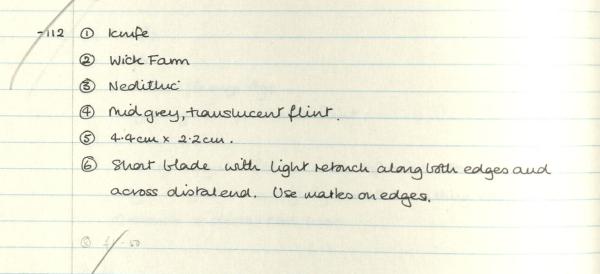 -112 ① Knife
② Wick Farm
③ Neolithic
④ Mid grey, translucent flint.
⑤ 4.4cm x 2.2cm.
⑥ Short blade with light retouch along both edges and
across distal end. Use marks on edges.